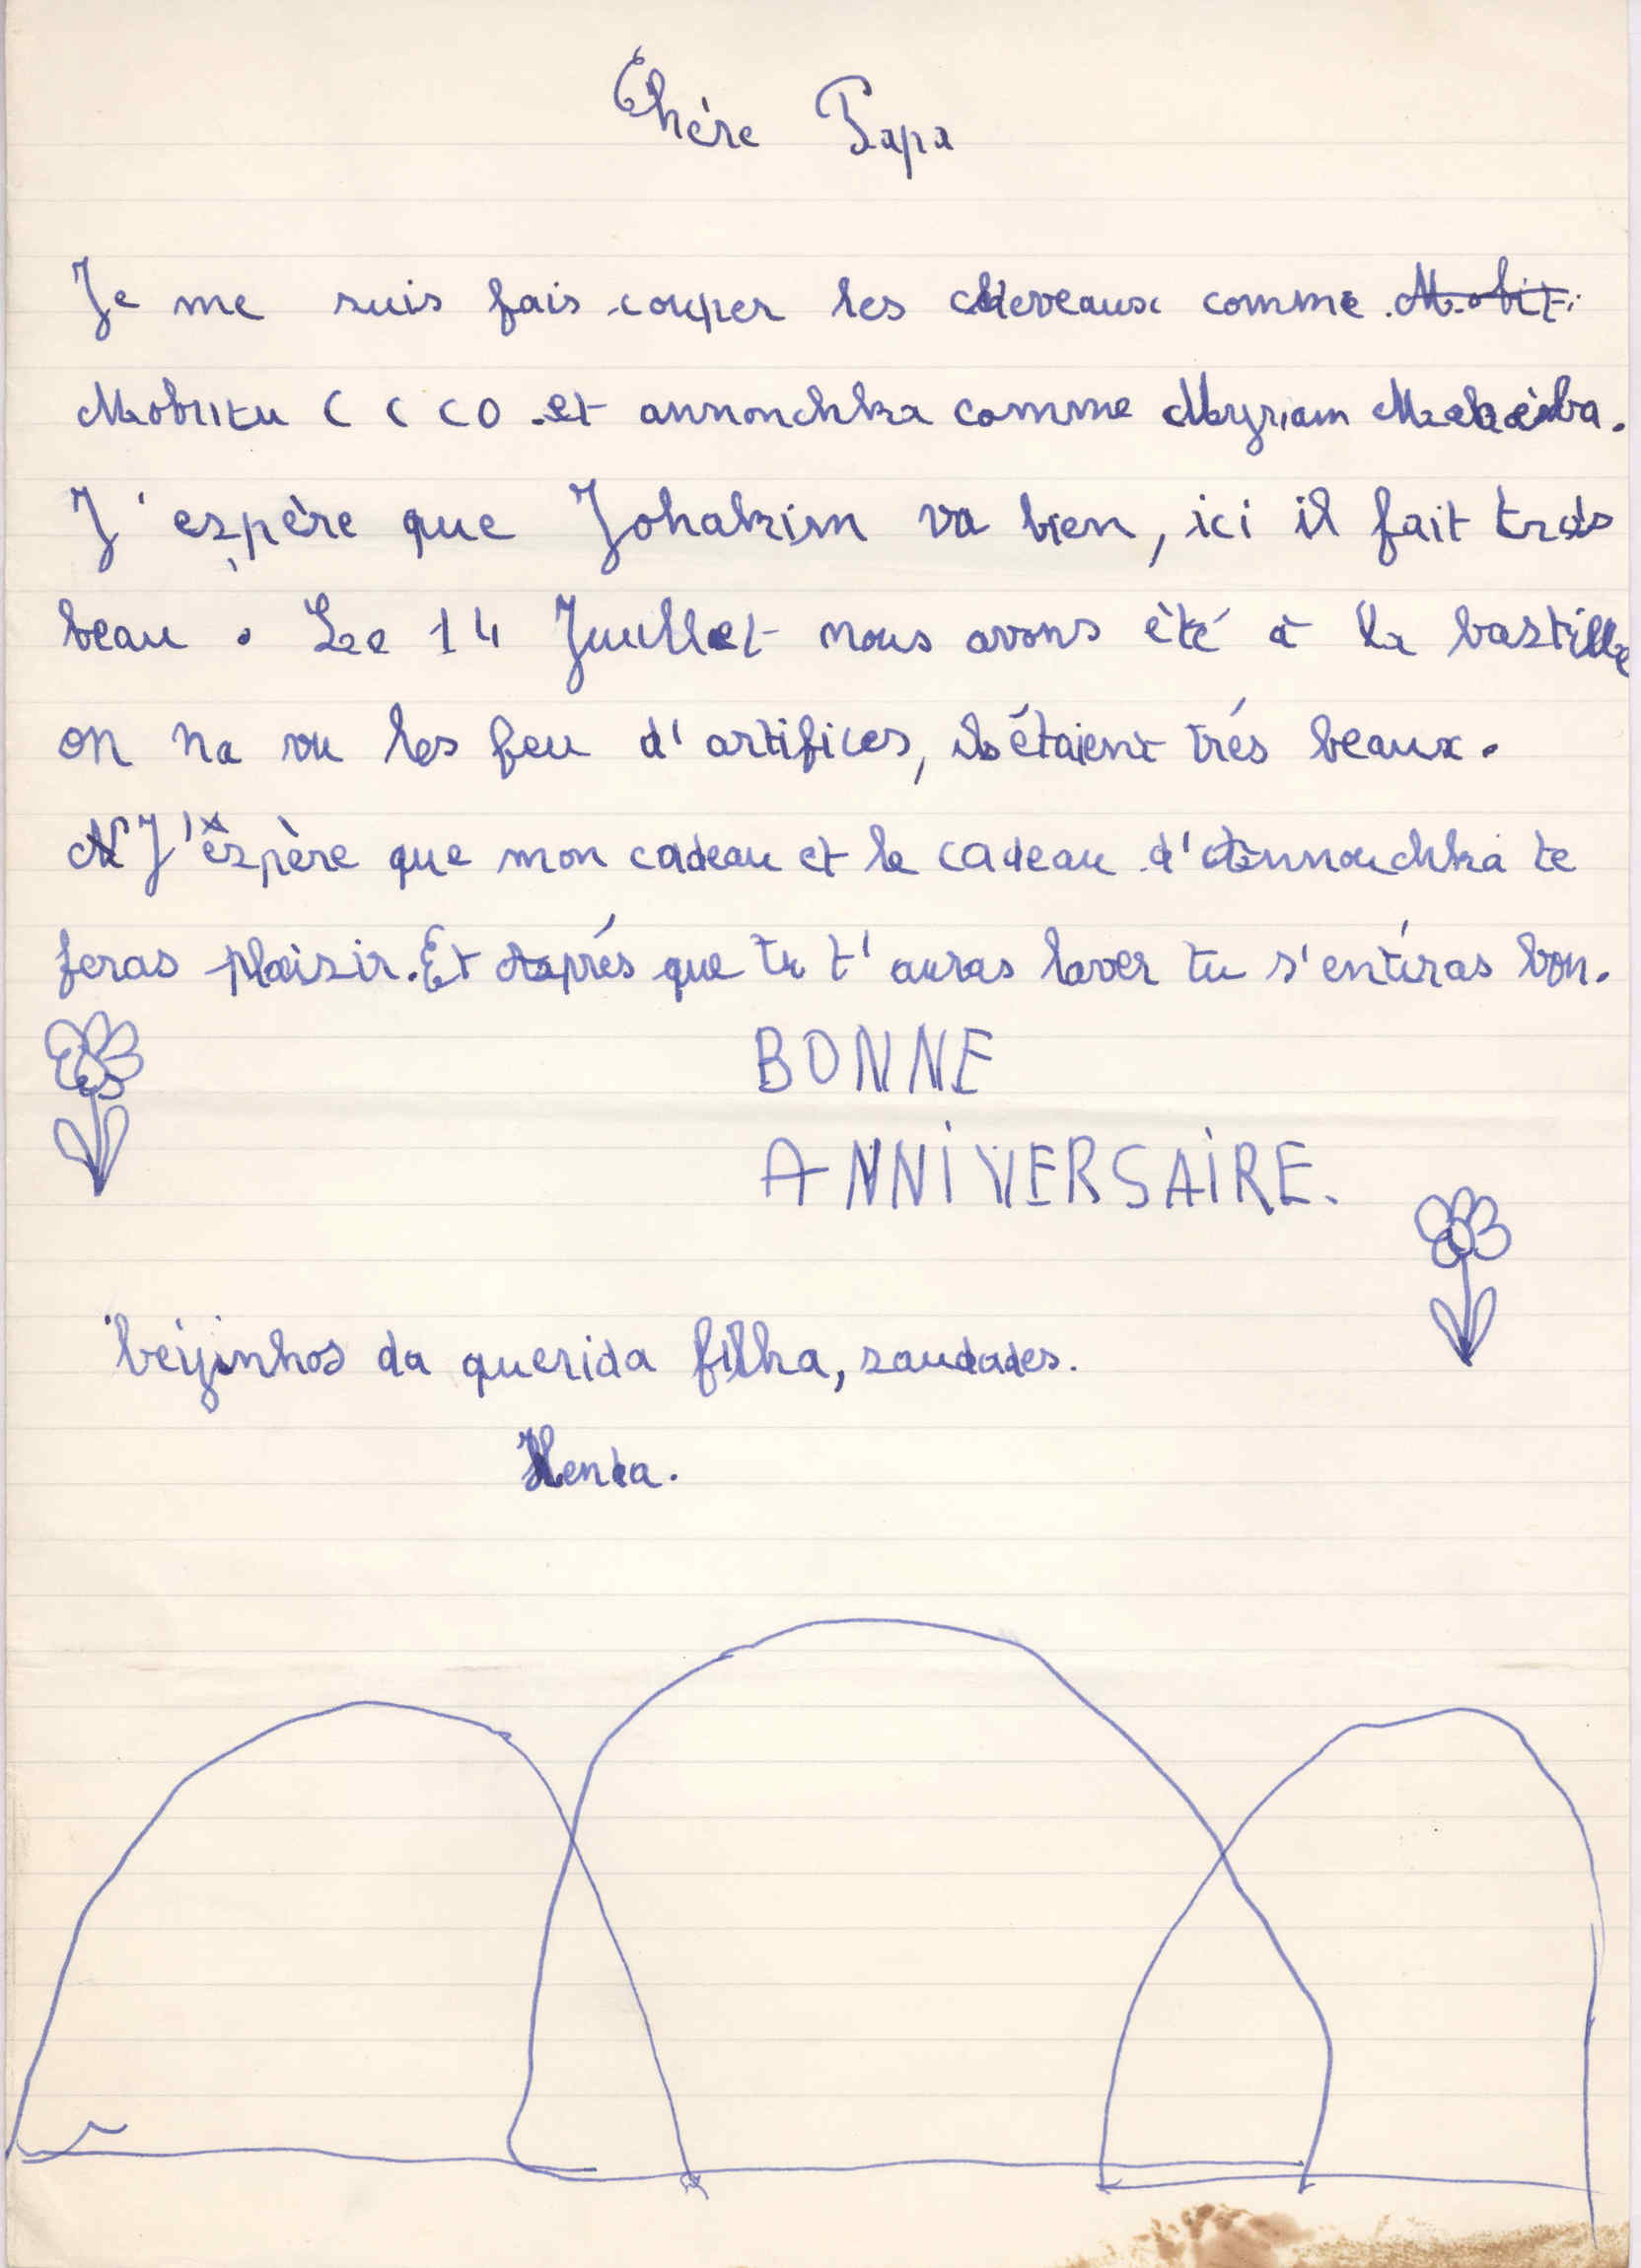 Chère Papa
Je me suis fais couper les cheveaux comme
Mobutu C C C O et annonchka comme Myriam Makeba.
J'espère que Johakim va bien, ici il fait trés
beau. Le 14 Juillet nous avons èté à la bastille
on na vu les feu d'artifices, ils étaient trés beaux.
J'espère que mon cadeau et le cadeau d'Annouchka te
feras plaisir. Et aprés que tu t'auras laver tu s'entiras bon.
BONNE
ANNIVERSAIRE.
beijinhos da querida filha, saudades.
Henda.